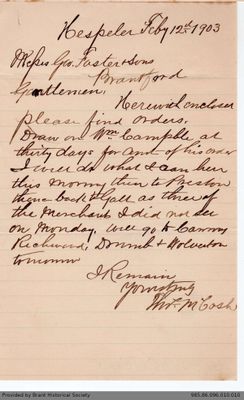 Hespeler Feby 12th 1903
Messrs Geo. Foster & Sons
Brantford
Gentlemen.
Herewith enclosed
please find orders.
Draw on Wm Campble at
thirty days for amt of his order
I will do what I can here
this morning then to Preston
thence back to Galt as three of
the Merchants I did not see
on Monday. will go to Canning
Richwood, Drumbo & Wolverton
tomorrow
I Remain
Yours truly
Thos. McCosh
Provided by Brant Historical Society
985.86.096.010.018